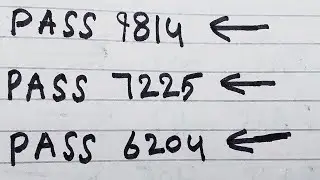 PASS 9814 ←
PASS 7225 ←
PASS 6204 ←